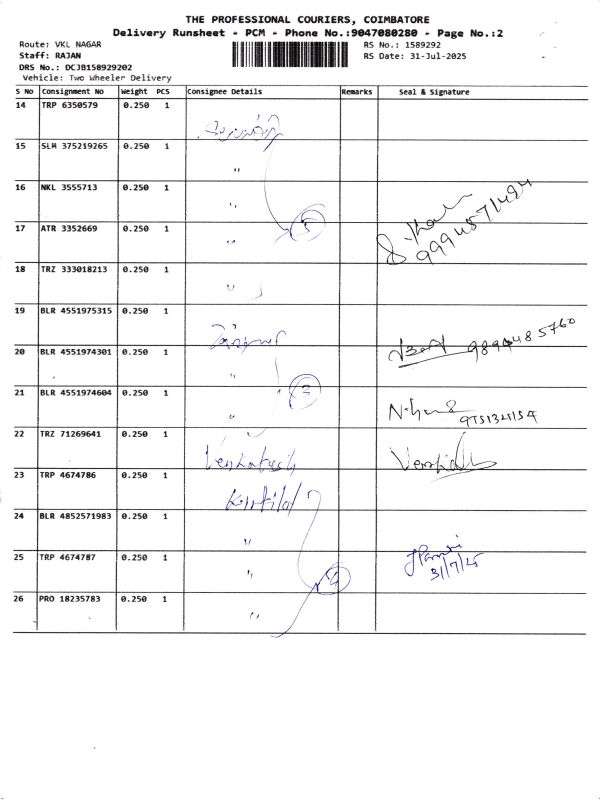 THE PROFESSIONAL COURIERS, COIMBATORE
Delivery Runsheet - PCM - Phone No.:9047080280 - Page No.:2
Route: VKL NAGAR
RS No.: 1589292
Staff: RAJAN
RS Date: 31-Jul-2025
DRS No.: DCJB158929202
Vehicle: Two Wheeler Delivery
S No Consignment No Weight PCS Consignee Details Remarks Seal & Signature
14 TRP 6350579 0.250 1
15 SLM 375219265 0.250 1 "
16 NKL 3555713 0.250 1 "
17 ATR 3352669 0.250 1 " 5
9994571424
18 TRZ 333018213 0.250 1 "
19 BLR 4551975315 0.250 1
20 BLR 4551974301 0.250 1 "
9894485760
21 BLR 4551974604 0.250 1 " 3
22 TRZ 71269641 0.250 1 Venkatesh
23 TRP 4674786 0.250 1 Kirtilal
24 BLR 4852571983 0.250 1 "
25 TRP 4674787 0.250 1 " 4
31/7/25
26 PRO 18235783 0.250 1 "